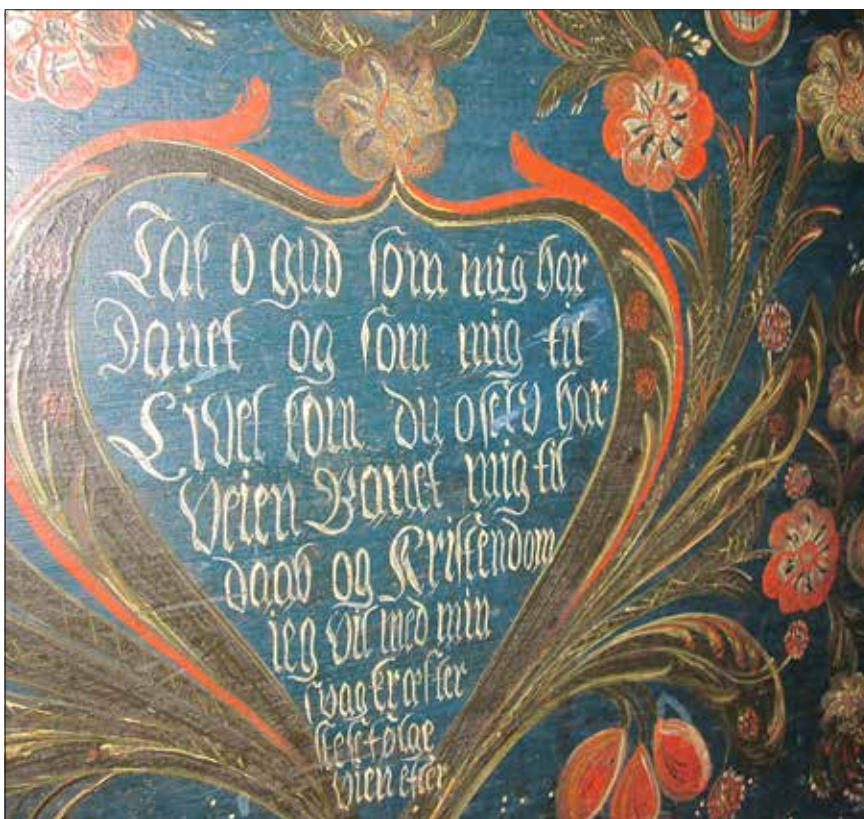 Tak o gud som mig har
Danet og som mig til
Livet kom du o selv har
Veien Banet mig til
daab og Kristendom
ieg vil med min
svag kræfter
følge
vien efter